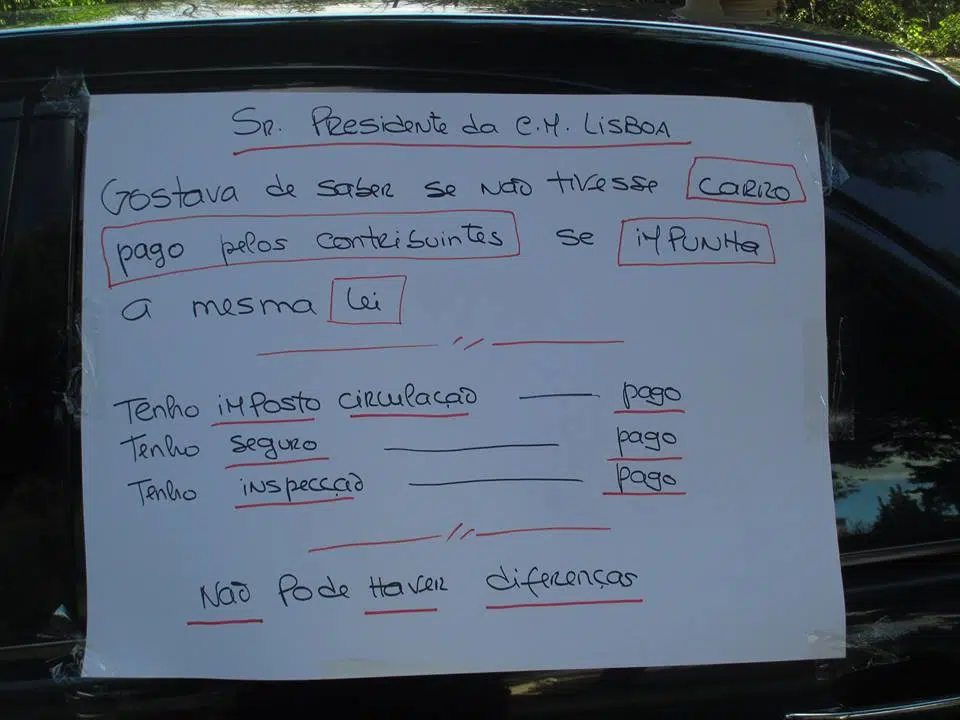 Sr. Presidente da C.M. Lisboa
Gostava de saber se não tivesse carro
pago pelos contribuintes se impunha
a mesma lei
//
Tenho imposto circulação — pago
Tenho seguro — pago
Tenho inspecção — pago
//
Não pode haver diferenças